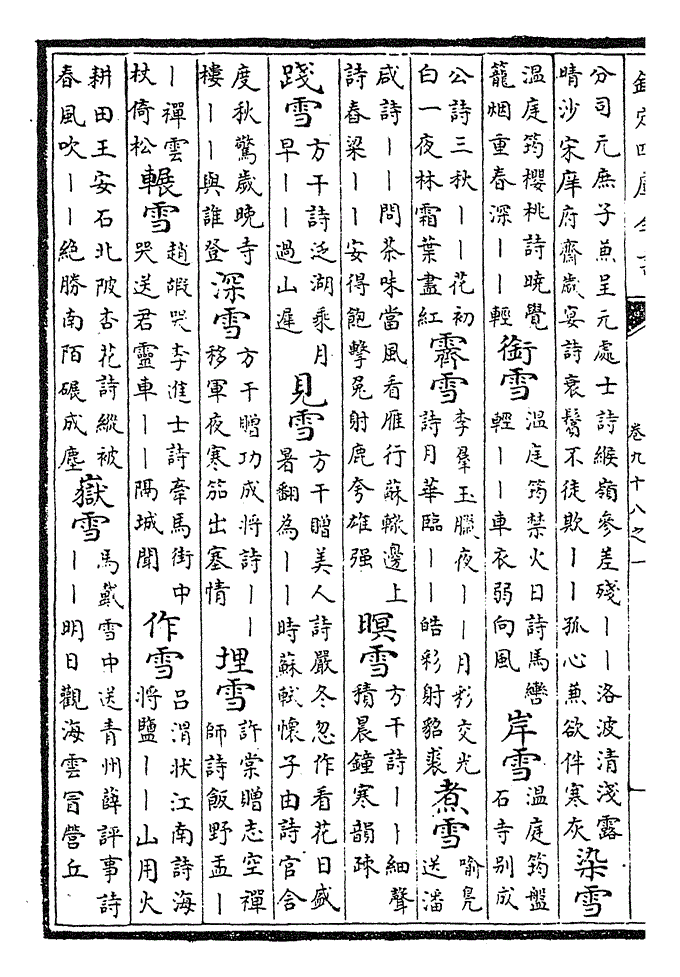 欽定四庫全書
卷九十八之一
分司元庶子兼呈元處士詩緱嶺參差殘丨丨洛波清淺露
晴沙宋庠府齋歲宴詩衰鬢不徒欺丨丨孤心兼欲件寒灰
染雪
溫庭筠櫻桃詩曉覺
籠烟重春深丨丨輕
銜雪
溫庭筠禁火日詩馬轡
輕丨丨車衣弱向風
岸雪
溫庭筠盤
石寺别成
公詩三秋丨丨花初
白一夜林霜葉盡紅
霽雪
李羣玉臘夜丨丨月彩交光
詩月華臨丨丨皓彩射貂裘
煮雪
喻鳬
送潘
咸詩丨丨問茶味當風看雁行蘇轍邊上
詩舂梁丨丨安得飽擊兔射鹿夸雄强
暝雪
方干詩丨丨細聲
積晨鐘寒韻疎
踐雪
方干詩泛湖乘月
早丨丨過山遲
見雪
方干贈美人詩嚴冬忽作看花日盛
暑翻為丨丨時蘇軾懷子由詩官舍
度秋驚歲晚寺
樓丨丨與誰登
深雪
方干贈功成將詩丨丨
移軍夜寒笳出塞情
埋雪
許棠贈志空禪
師詩飯野盂丨
丨禪雲
杖倚松
輾雪
趙嘏哭李進士詩牽馬街中
哭送君靈車丨丨隔城聞
作雪
吕渭狀江南詩海
將鹽丨丨山用火
耕田王安石北陂杏花詩縱被
春風吹丨丨絕勝南陌碾成塵
嶽雪
馬戴雪中送青州薛評事詩
丨丨明日觀海雲冒營丘